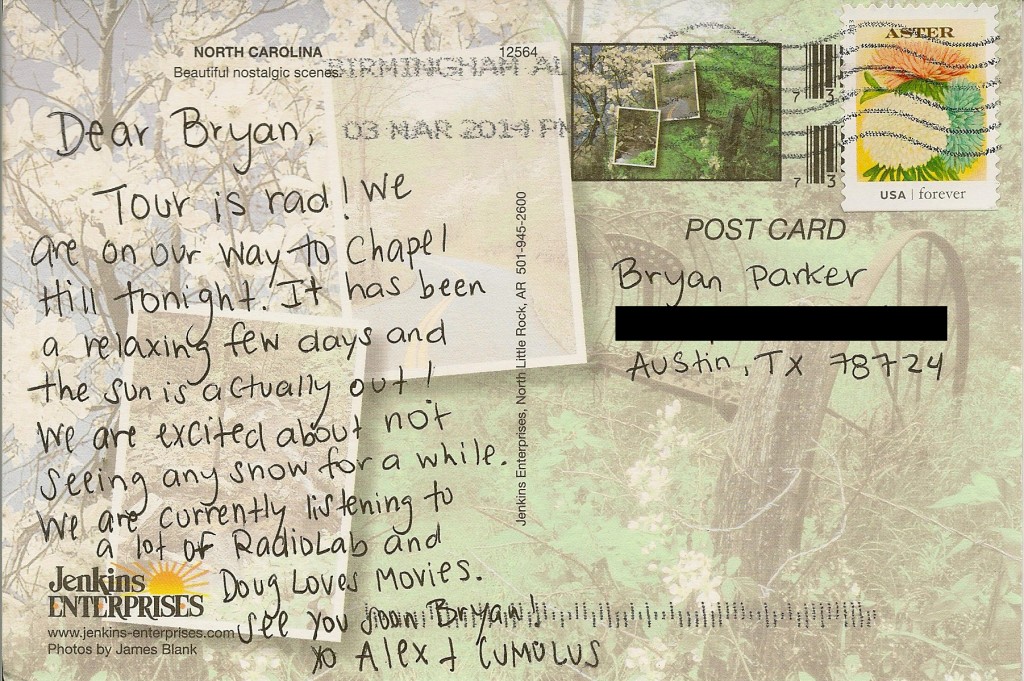 NORTH CAROLINA
Beautiful nostalgic scenes.
12564
BIRMINGHAM AL
03 MAR 2014 PM
ASTER
USA | forever
7 3
7 3
Dear Bryan,
Tour is rad! We
are on our way to Chapel
Hill tonight. It has been
a relaxing few days and
the sun is actually out!
We are excited about not
seeing any snow for a while.
We are currently listening to
a lot of RadioLab and
Doug Loves Movies.
See you soon Bryan!
xo Alex + CUMULUS
Jenkins Enterprises, North Little Rock, AR 501-945-2600
POST CARD
Bryan Parker
Austin, TX 78724
Jenkins
ENTERPRISES
www.jenkins-enterprises.com
Photos by James Blank